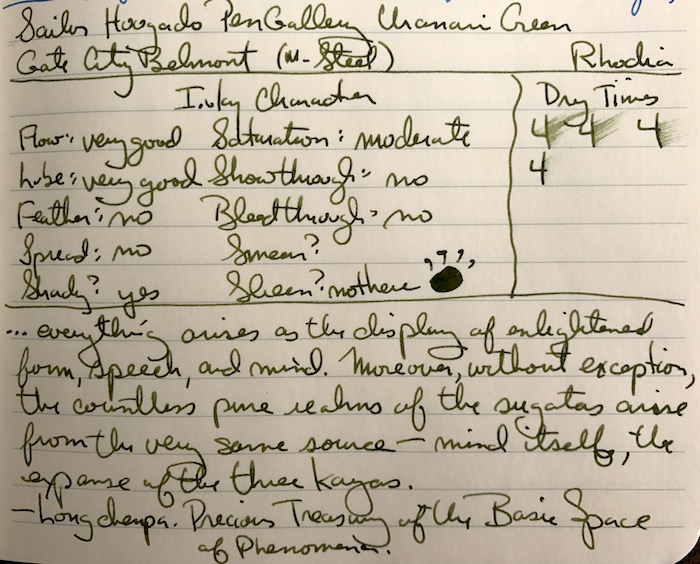 Sailor Hougado PenGallery Uranari Green
Gate City Belmont (M-Steel) Rhodia
Inky Character
Dry Times
Flow: very good Saturation: moderate
4 4 4
Lube: very good Showthrough: no
4
Feather: no Bleedthrough: no
Spread: no Smear?
Shady? yes Sheen? not here
... everything arises as the display of enlightened
form, speech, and mind. Moreover, without exception,
the countless pure realms of the sugatas arise
from the very same source — mind itself, the
expanse of the three kayas.
— Longchenpa. Precious Treasury of the Basic Space
of Phenomena.